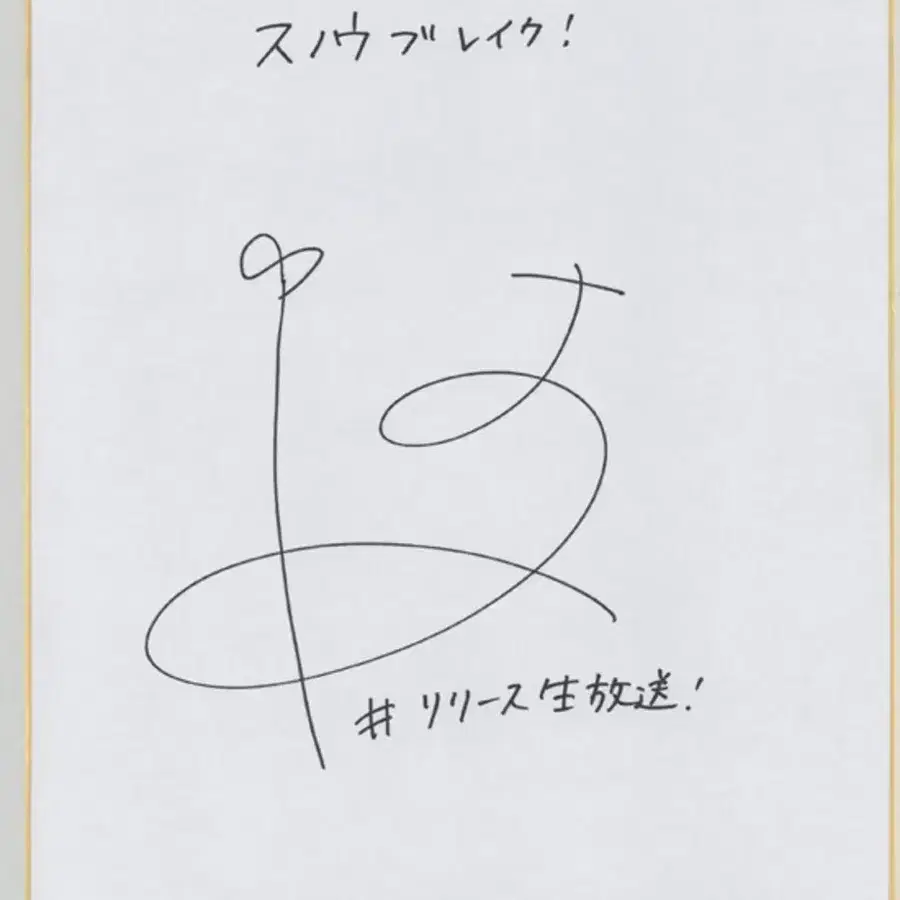 スノウブレイク!
#リリース生放送!